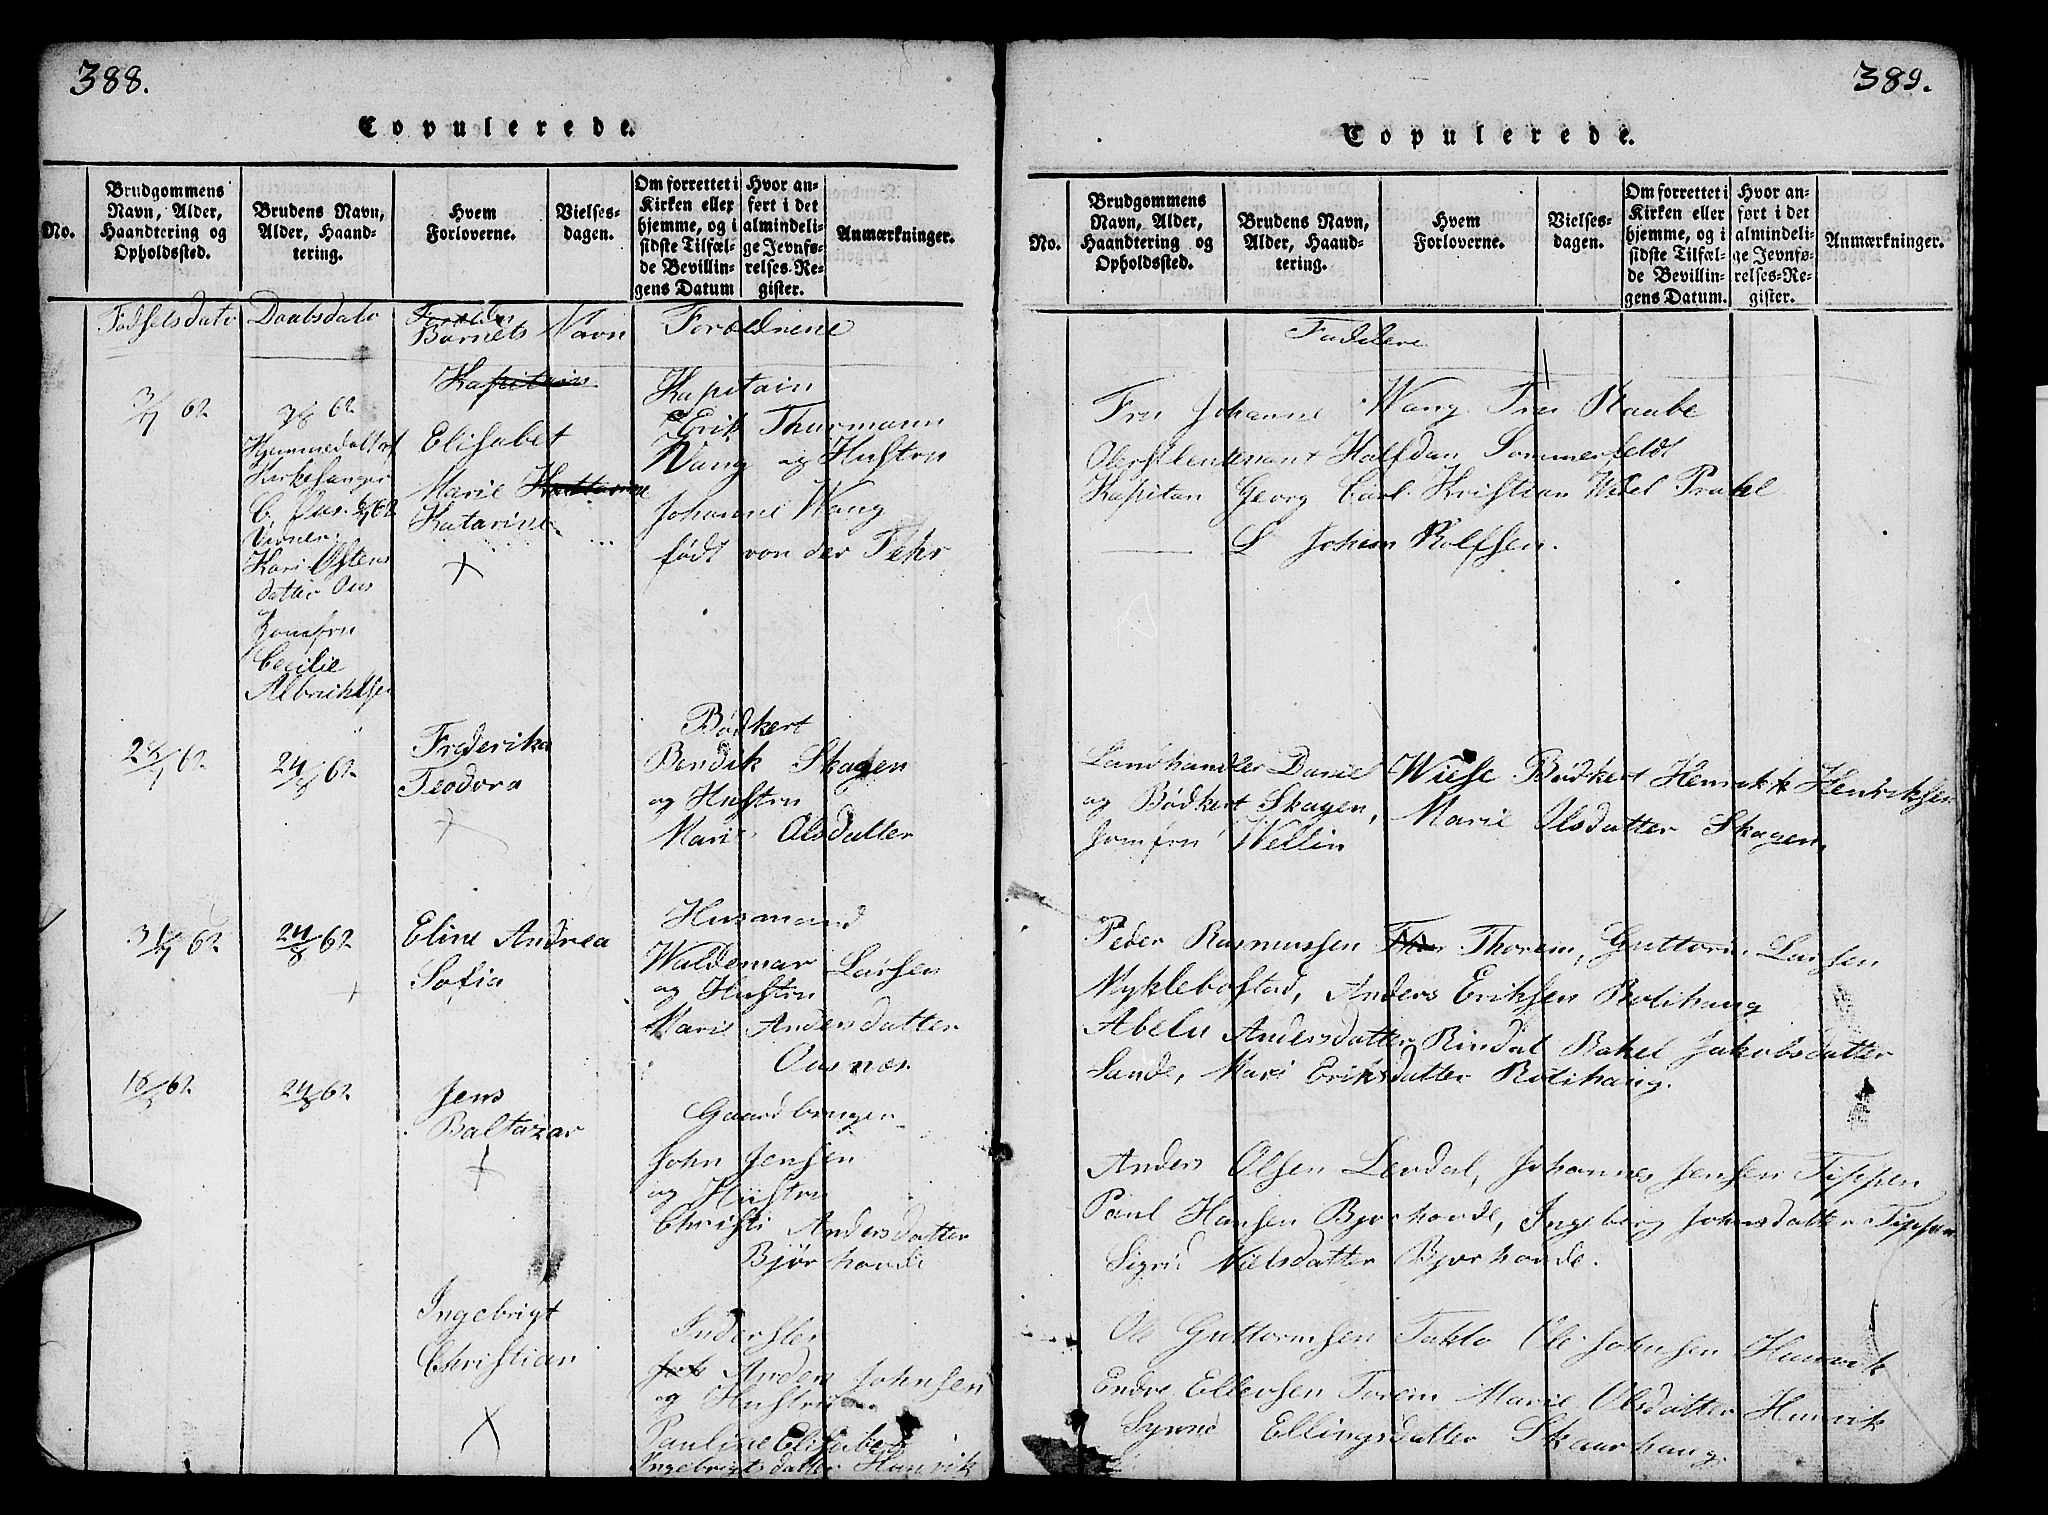 388.
Copulerede.
No.
Brudgommens
Navn, Alder,
Haandtering og
Opholdssted.
Brudens Navn,
Alder, Haand-
tering.
Hvem
Forloverne.
Vielses-
dagen.
Om forrettet i
Kirken eller
hjemme, og i
sidste Tilfæl-
de Bevillin-
gens Datum
Hvor an-
ført i det
almindeli-
ge Jevnfø-
relses-Re-
gister.
Anmærkninger.
Fødselsdato
Daabsdato
Barnets Navn
Forældrene
3/7 62
3/8 62
Hjemmedøbt af
Kirkesanger
C. Aas
Vidner:
Kari Østens
datter Aas
og
Jomfru
Cecilie
Albrichtsen
Kapitain
Elisabet
Marie
Katarine
Kapitain
Erik Thurmann
Wang og Hustru
Johanne Wang
født von der Fehr
24/8 62
Frederika
Teodora
Bødkert
Bendik Skagen
og Hustru
Mari Olsdatter
31/7 62
24/8 62
Eline Andrea
Sofia
Husmand
Waldemar Larsen
og Hustru
Maris Andersdatter
Aasnæs.
24/8 62
Jens
Baltazar
Gaardbruger
John Jensen
og Hustru
Christi Andersdatter
Bjørhovde
Ingebrigt
Christian
Inderster
Anden Johnsen
og Hustru
Pauline Elisabet
Ingebrigtsdatter Hunvik
389.
Copulerede.
No.
Brudgommens
Navn, Alder,
Haandtering og
Opholdssted.
Brudens Navn,
Alder, Haand-
tering.
Hvem
Forloverne.
Vielses-
dagen.
Om forrettet i
Kirken eller
hjemme, og i
sidste Tilfæl-
de Bevillin-
gens Datum.
Hvor an-
ført i det
almindeli-
ge Jevnfø-
relses-Re-
gister.
Anmærkninger.
Faddere
Fru Johanne Wang Fru Raabe
Oberstlentenant Halfdan Sommerfeldt
Kapitan Georg Carl Kristian Wedel Prahl
L Johim Rolfsen.
Landhandler Daniel Wiese Bødkert Henrik Henriksen
og Bødkert Skagen, Marie Olsdatter Skagen,
Jomfru Wellin
Peder Rasmussen Thorem, Guttorm Larsen
Myklebostad, Anders Eriksen Rolihaug
Abelu Andersdatter Rindal Rakel Jakobsdatter
Sande, Mari Eriksdatter Rolihaug.
Anders Olsen Lerdal, Johannes Jensen Tippen
Paul Hansen Bjørhovde, Ingeborg Johnsdatter Tippen
Sigrid Nielsdatter Bjørhovde.
Ole Guttormsen Taklo Ole Johnsen Hunvik
Endre Ellevsen Torem Marie Olsdatter Hunvik
Synnø Ellingsdatter Skaarhaug